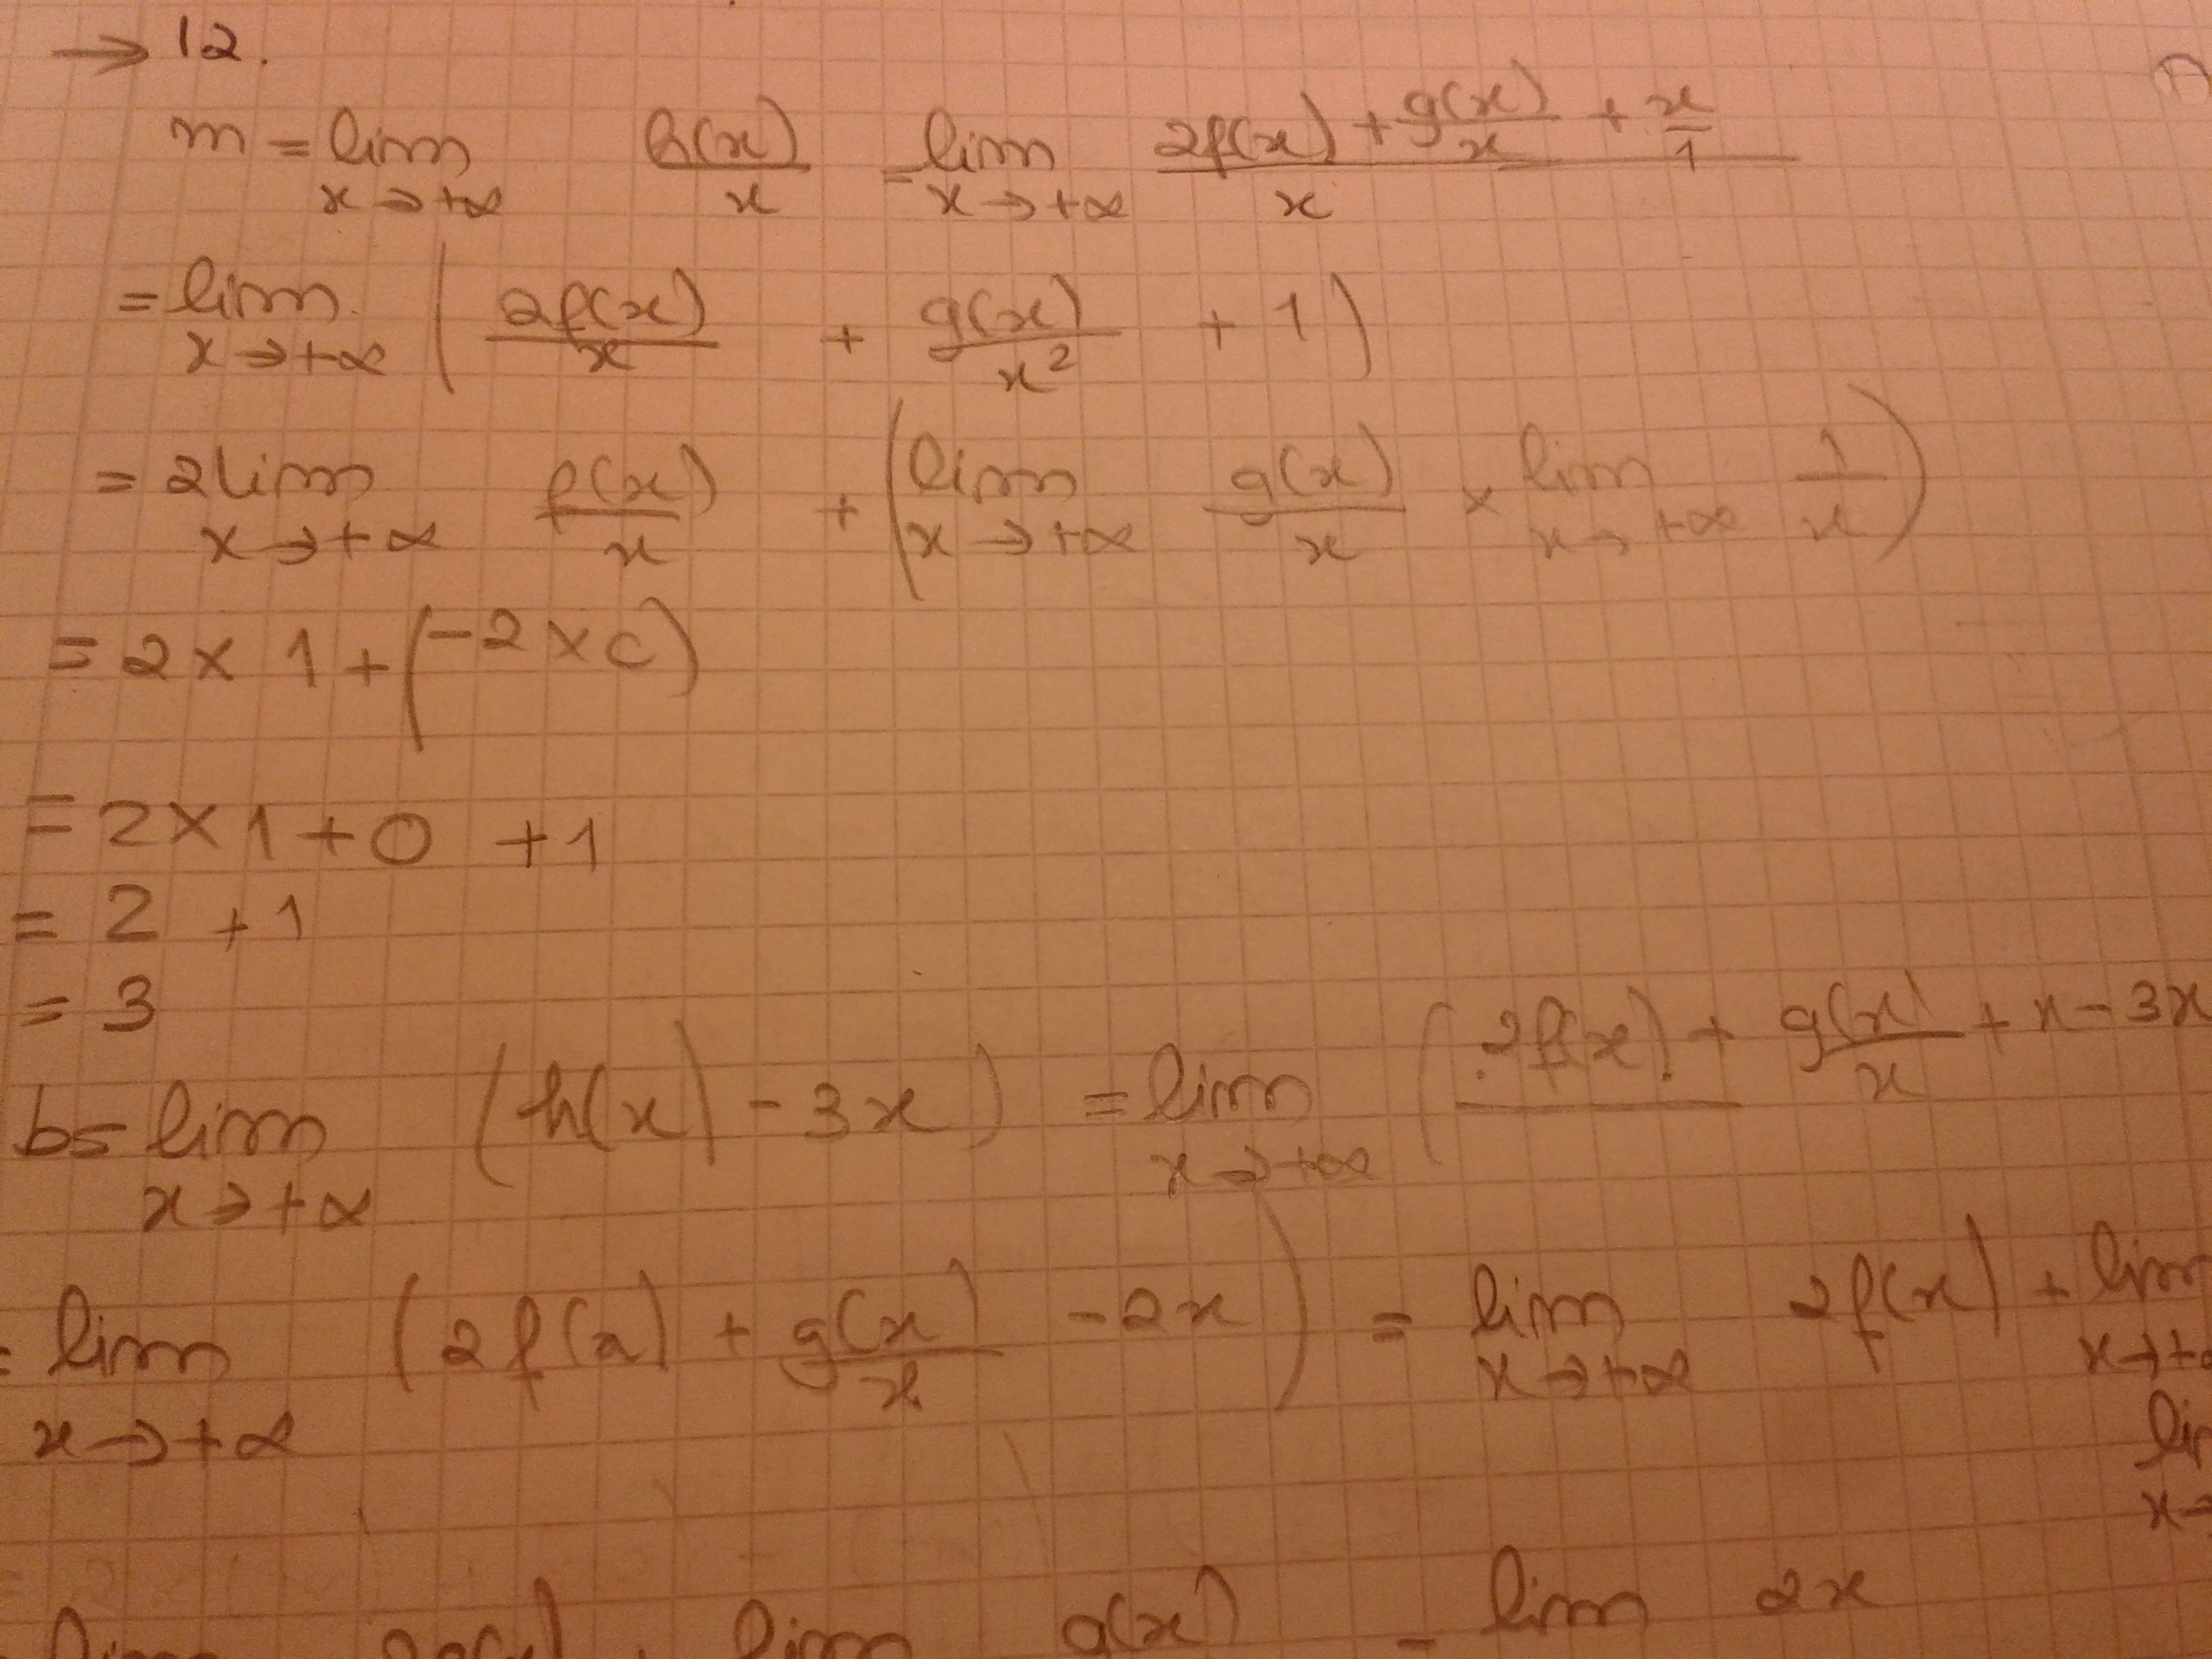 → 12.
m = lim x→+∞ h(x)/x = lim x→+∞ (2f(x) + g(x)/x + x/1)/x
= lim x→+∞ (2f(x)/x + g(x)/x² + 1)
= 2lim x→+∞ f(x)/x + (lim x→+∞ g(x)/x × lim x→+∞ 1/x)
= 2 × 1 + (-2 × 0)
= 2 × 1 + 0 + 1
= 2 + 1
= 3
b = lim x→+∞ (h(x) - 3x) = lim x→+∞ (2f(x) + g(x)/x + x - 3x
= lim x→+∞ (2f(x) + g(x)/x - 2x) = lim x→+∞ 2f(x) + lim x→+∞
lim g(x) - lim 2x